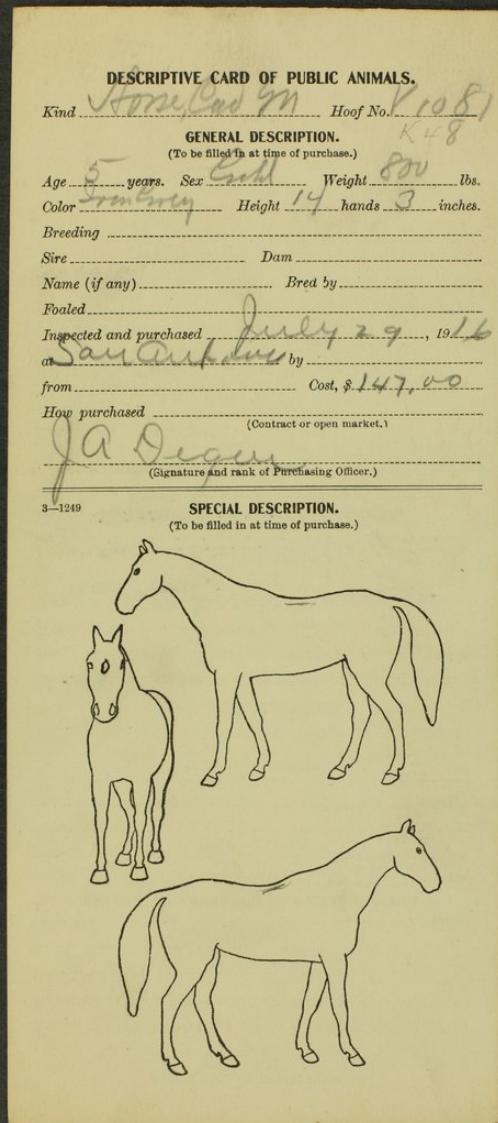 DESCRIPTIVE CARD OF PUBLIC ANIMALS.
Kind Horse, Cav Hoof No. 1081
K48
GENERAL DESCRIPTION.
(To be filled in at time of purchase.)
Age 5 years. Sex Weight 800 lbs.
Color Iron Grey Height 14 hands 3 inches.
Breeding
Sire Dam
Name (if any) Bred by
Foaled
Inspected and purchased July 29, 1916
at San Antonio by
from Cost, $147.00
How purchased
(Contract or open market.)
J A
(Signature and rank of Purchasing Officer.)
3—1249
SPECIAL DESCRIPTION.
(To be filled in at time of purchase.)